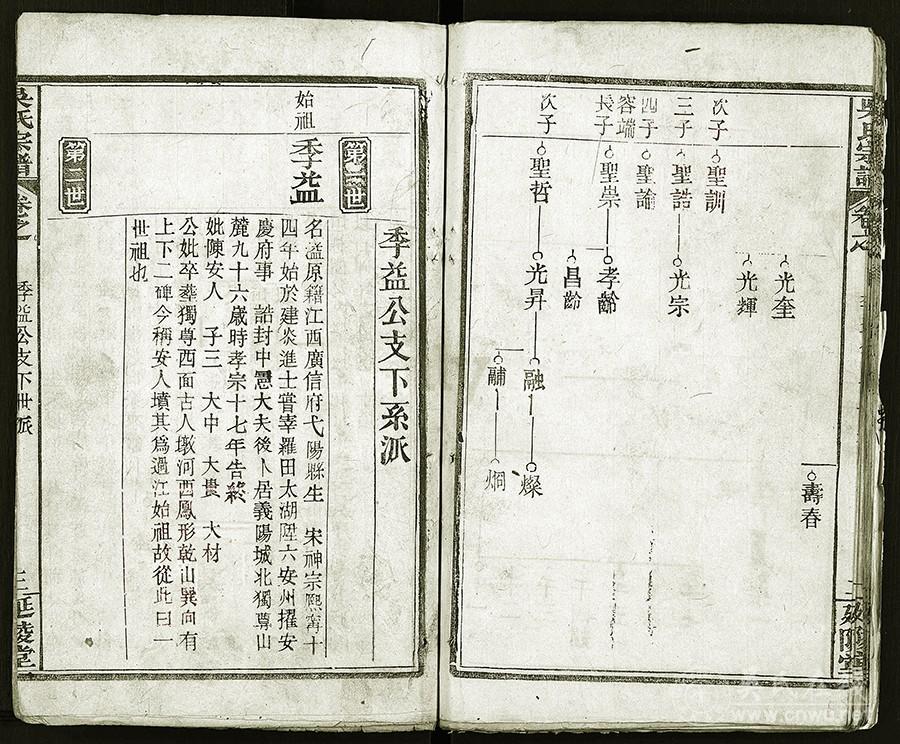 吳氏宗譜
卷之
二
壽春
光奎
光輝
次子
聖訓
三子
聖誥
光宗
四子
聖諭
容端
長子
聖崇
孝齡
昌齡
次子
聖哲
光昇
融
燦
炯
季益公支下系派
第一世
始祖
季益
名溢原籍江西廣信府弋陽縣生 宋神宗熙甯十
四年始於建炎進士嘗宰羅田太湖陞六安州擢安
慶府事 誥封中憲大夫後卜居義陽城北獨尊山
麓九十六歲時孝宗十七年告終
妣陳安人 子三 大中 大貴 大材
公妣卒葬獨尊西面古人墩河西鳳形乾山巽向有
上下二碑今稱安人墳其為過江始祖故從此曰一
世祖也
第二世
吳氏宗譜
卷之
季益公支下世派
三
延陵堂
www.cnwu.net